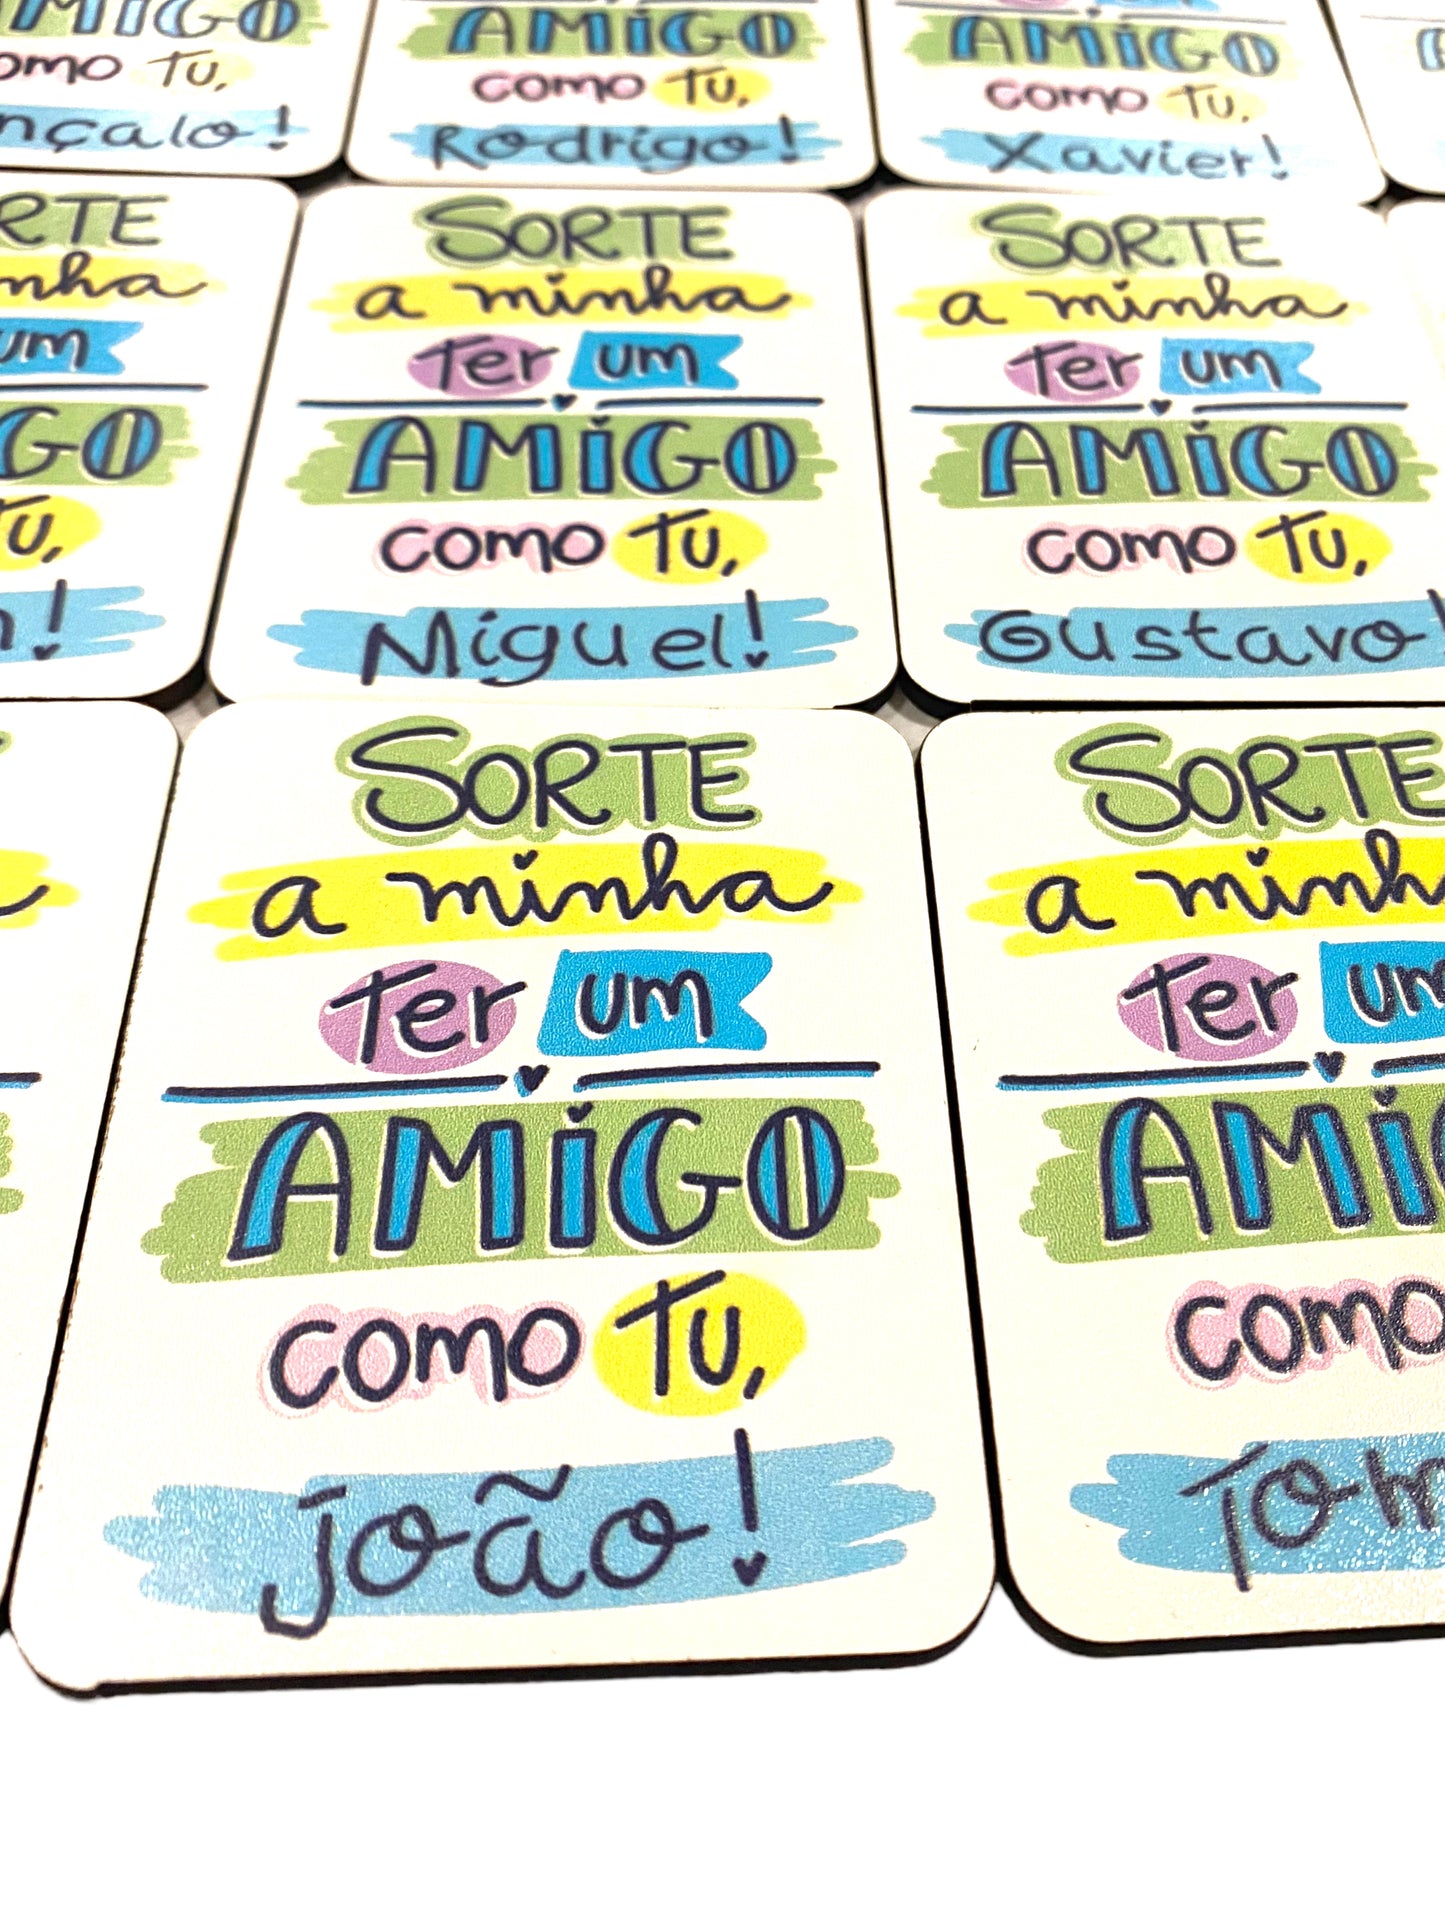 AMiGO
como Tu,
AMiGO
como Tu,
Rodrigo!
AMiGO
como Tu,
Xavier!
um
Tu,
SORTE
a minha
Ter um
AMiGO
como Tu,
Miguel!
SORTE
a minha
Ter um
AMiGO
como Tu,
Gustavo!
SORTE
a minha
Ter um
AMiGO
como Tu,
João!
SORTE
a minha
Ter um
como